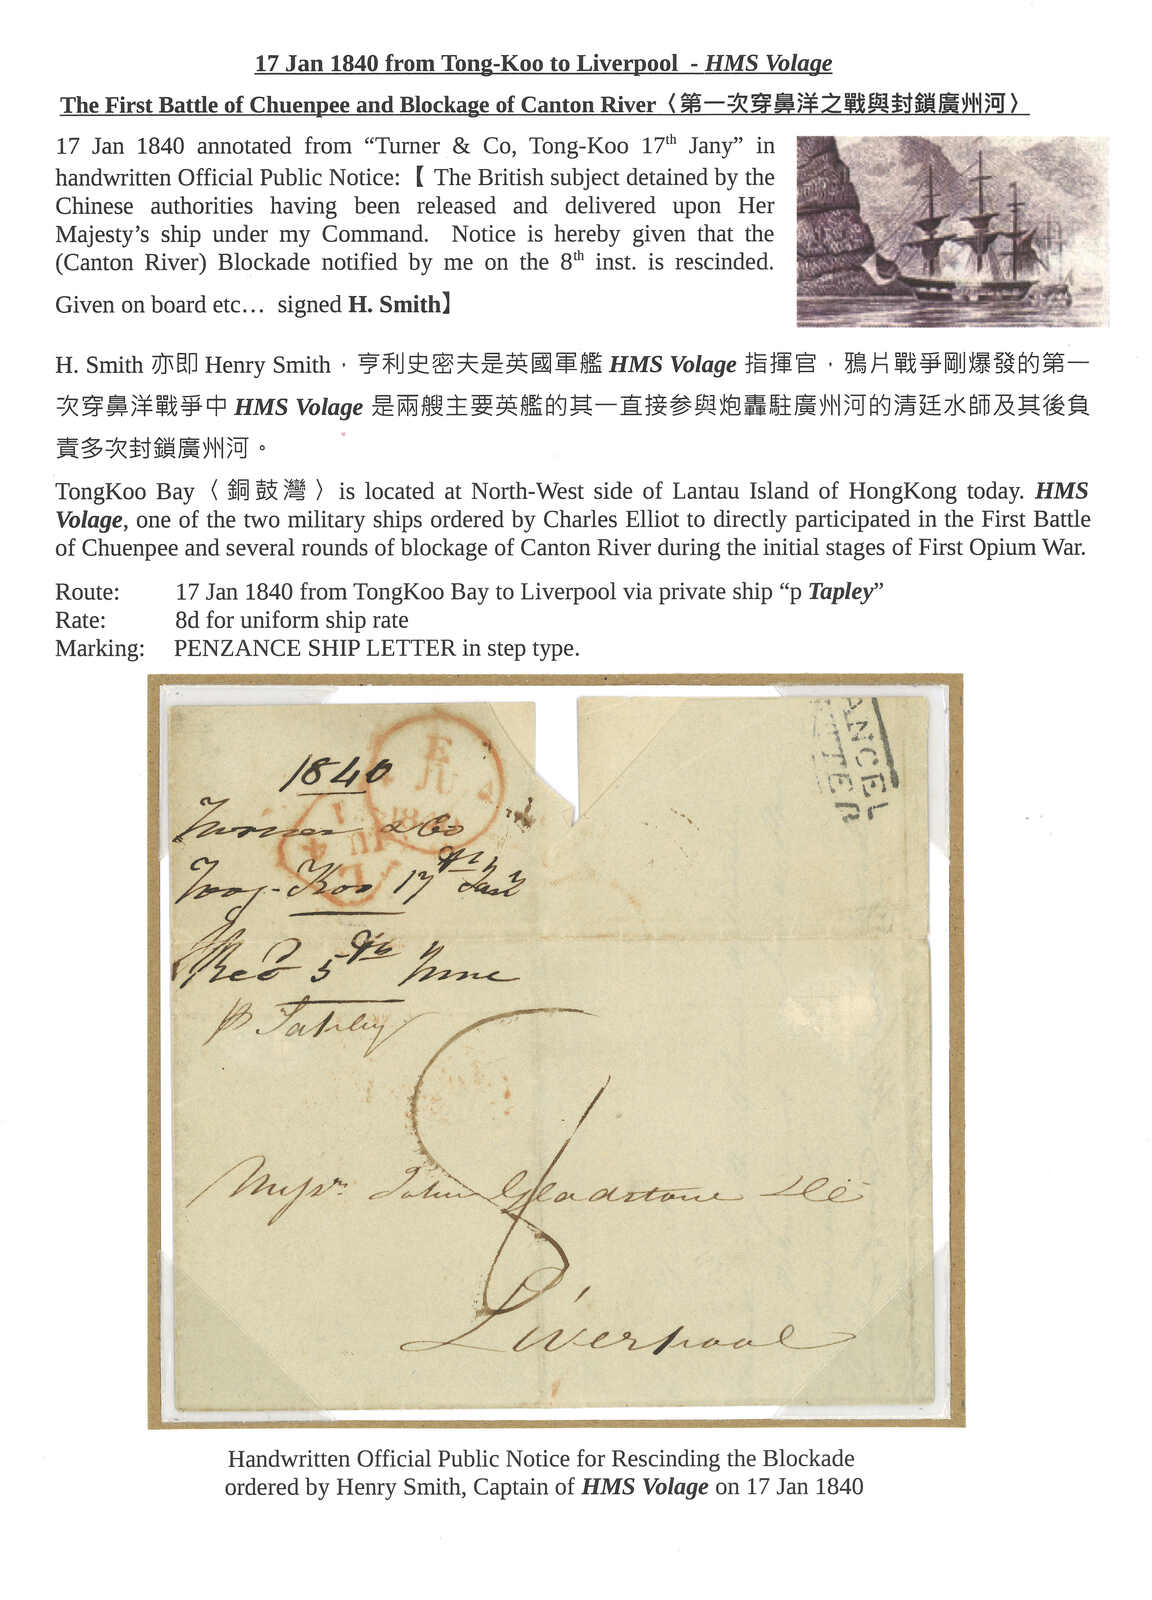 17 Jan 1840 from Tong-Koo to Liverpool - HMS Volage
The First Battle of Chuenpee and Blockage of Canton River〈第一次穿鼻洋之戰與封鎖廣州河〉
17 Jan 1840 annotated from “Turner & Co, Tong-Koo 17th Jany” in
handwritten Official Public Notice:【 The British subject detained by the
Chinese authorities having been released and delivered upon Her
Majesty’s ship under my Command. Notice is hereby given that the
(Canton River) Blockade notified by me on the 8th inst. is rescinded.
Given on board etc… signed H. Smith】
H. Smith 亦即 Henry Smith，亨利史密夫是英國軍艦 HMS Volage 指揮官，鴉片戰爭剛爆發的第一
次穿鼻洋戰爭中 HMS Volage 是兩艘主要英艦的其一直接參與炮轟駐廣州河的清廷水師及其後負
責多次封鎖廣州河。
TongKoo Bay〈銅鼓灣〉is located at North-West side of Lantau Island of HongKong today. HMS
Volage, one of the two military ships ordered by Charles Elliot to directly participated in the First Battle
of Chuenpee and several rounds of blockage of Canton River during the initial stages of First Opium War.
Route: 17 Jan 1840 from TongKoo Bay to Liverpool via private ship “p Tapley”
Rate: 8d for uniform ship rate
Marking: PENZANCE SHIP LETTER in step type.
ANCE
TTER
E
JU
4
1840
Turner & Co
Tong-Koo 17th Jany
Recd 5th June
p Tapley
8
Messrs. John Gladstone & Co
Liverpool
Handwritten Official Public Notice for Rescinding the Blockade
ordered by Henry Smith, Captain of HMS Volage on 17 Jan 1840